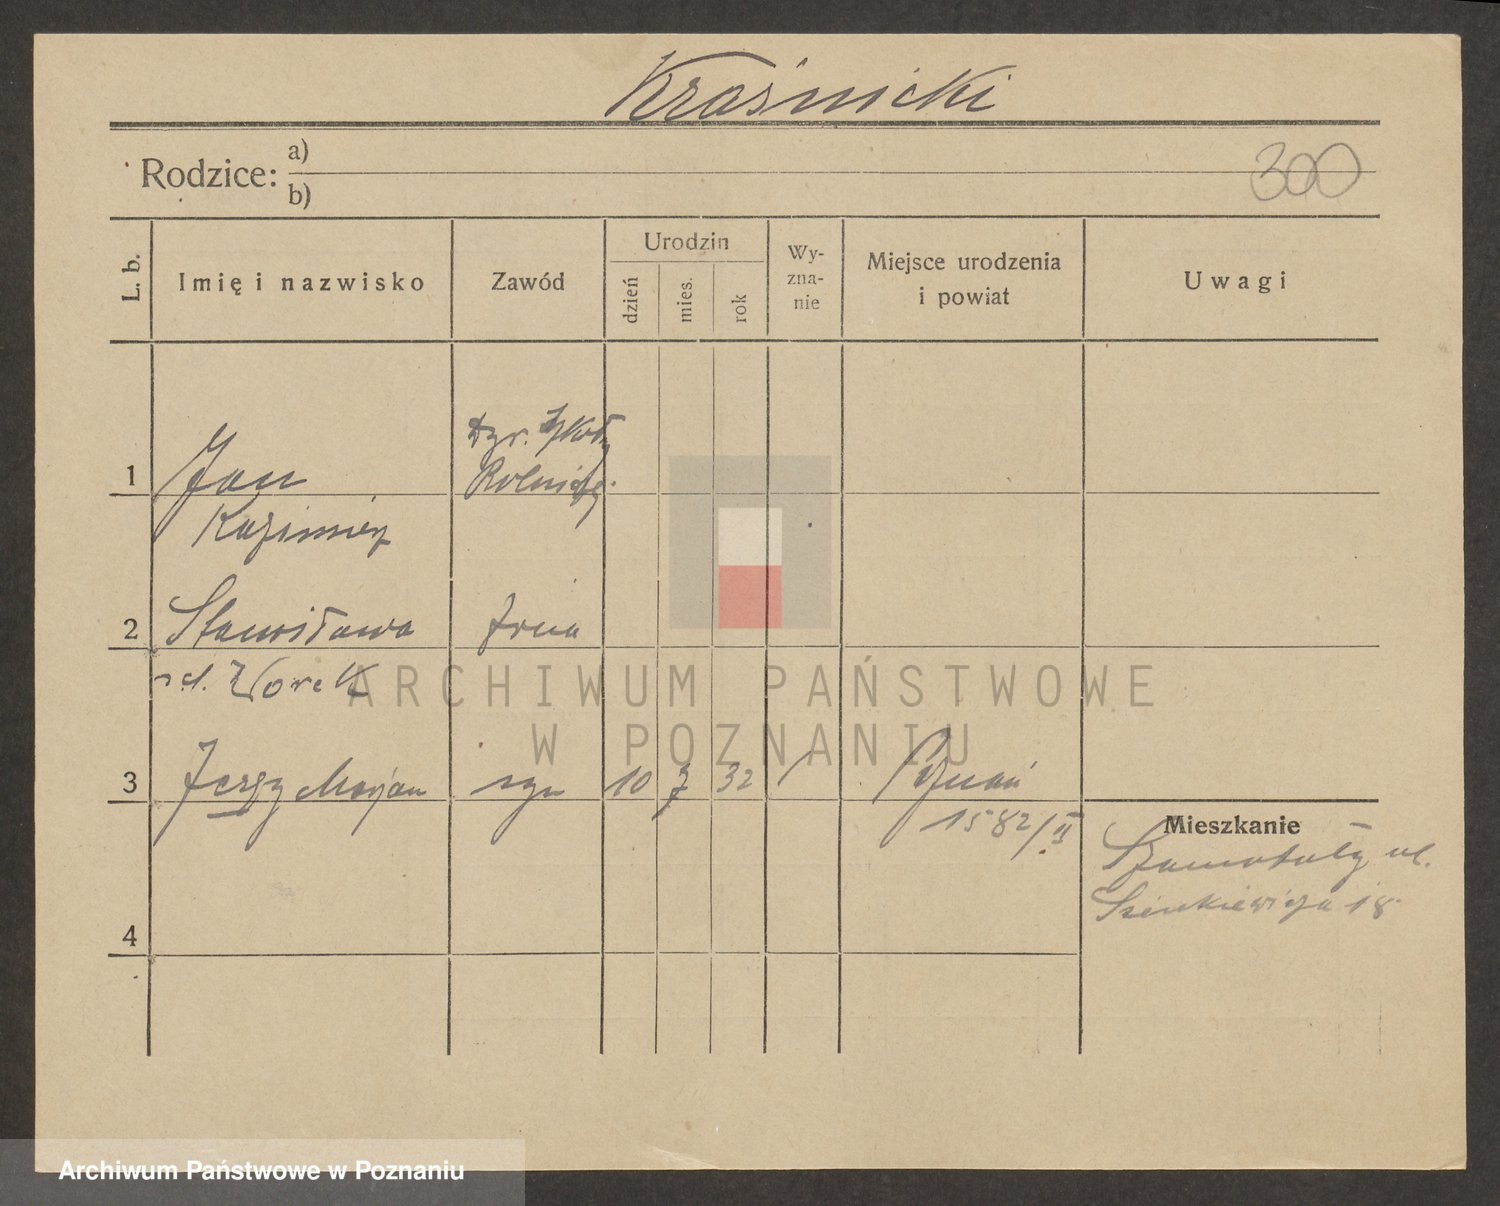 Kraśnicki
Rodzice: a)
b)
300
L. b.
Imię i nazwisko
Zawód
Urodzin
dzień
mies.
rok
Wy-
zna-
nie
Miejsce urodzenia
i powiat
Uwagi
1
Jan
Kazimierz
Dyr. Szkoły
Rolniczej
2
Stanisława
Żona
Worek
3
Jerzy Marjan
syn
10
7
32
Poznań
1582/II
Mieszkanie
Szamotuły ul.
Sienkiewicza 18
4
ARCHIWUM PAŃSTWOWE
W POZNANIU
Archiwum Państwowe w Poznaniu